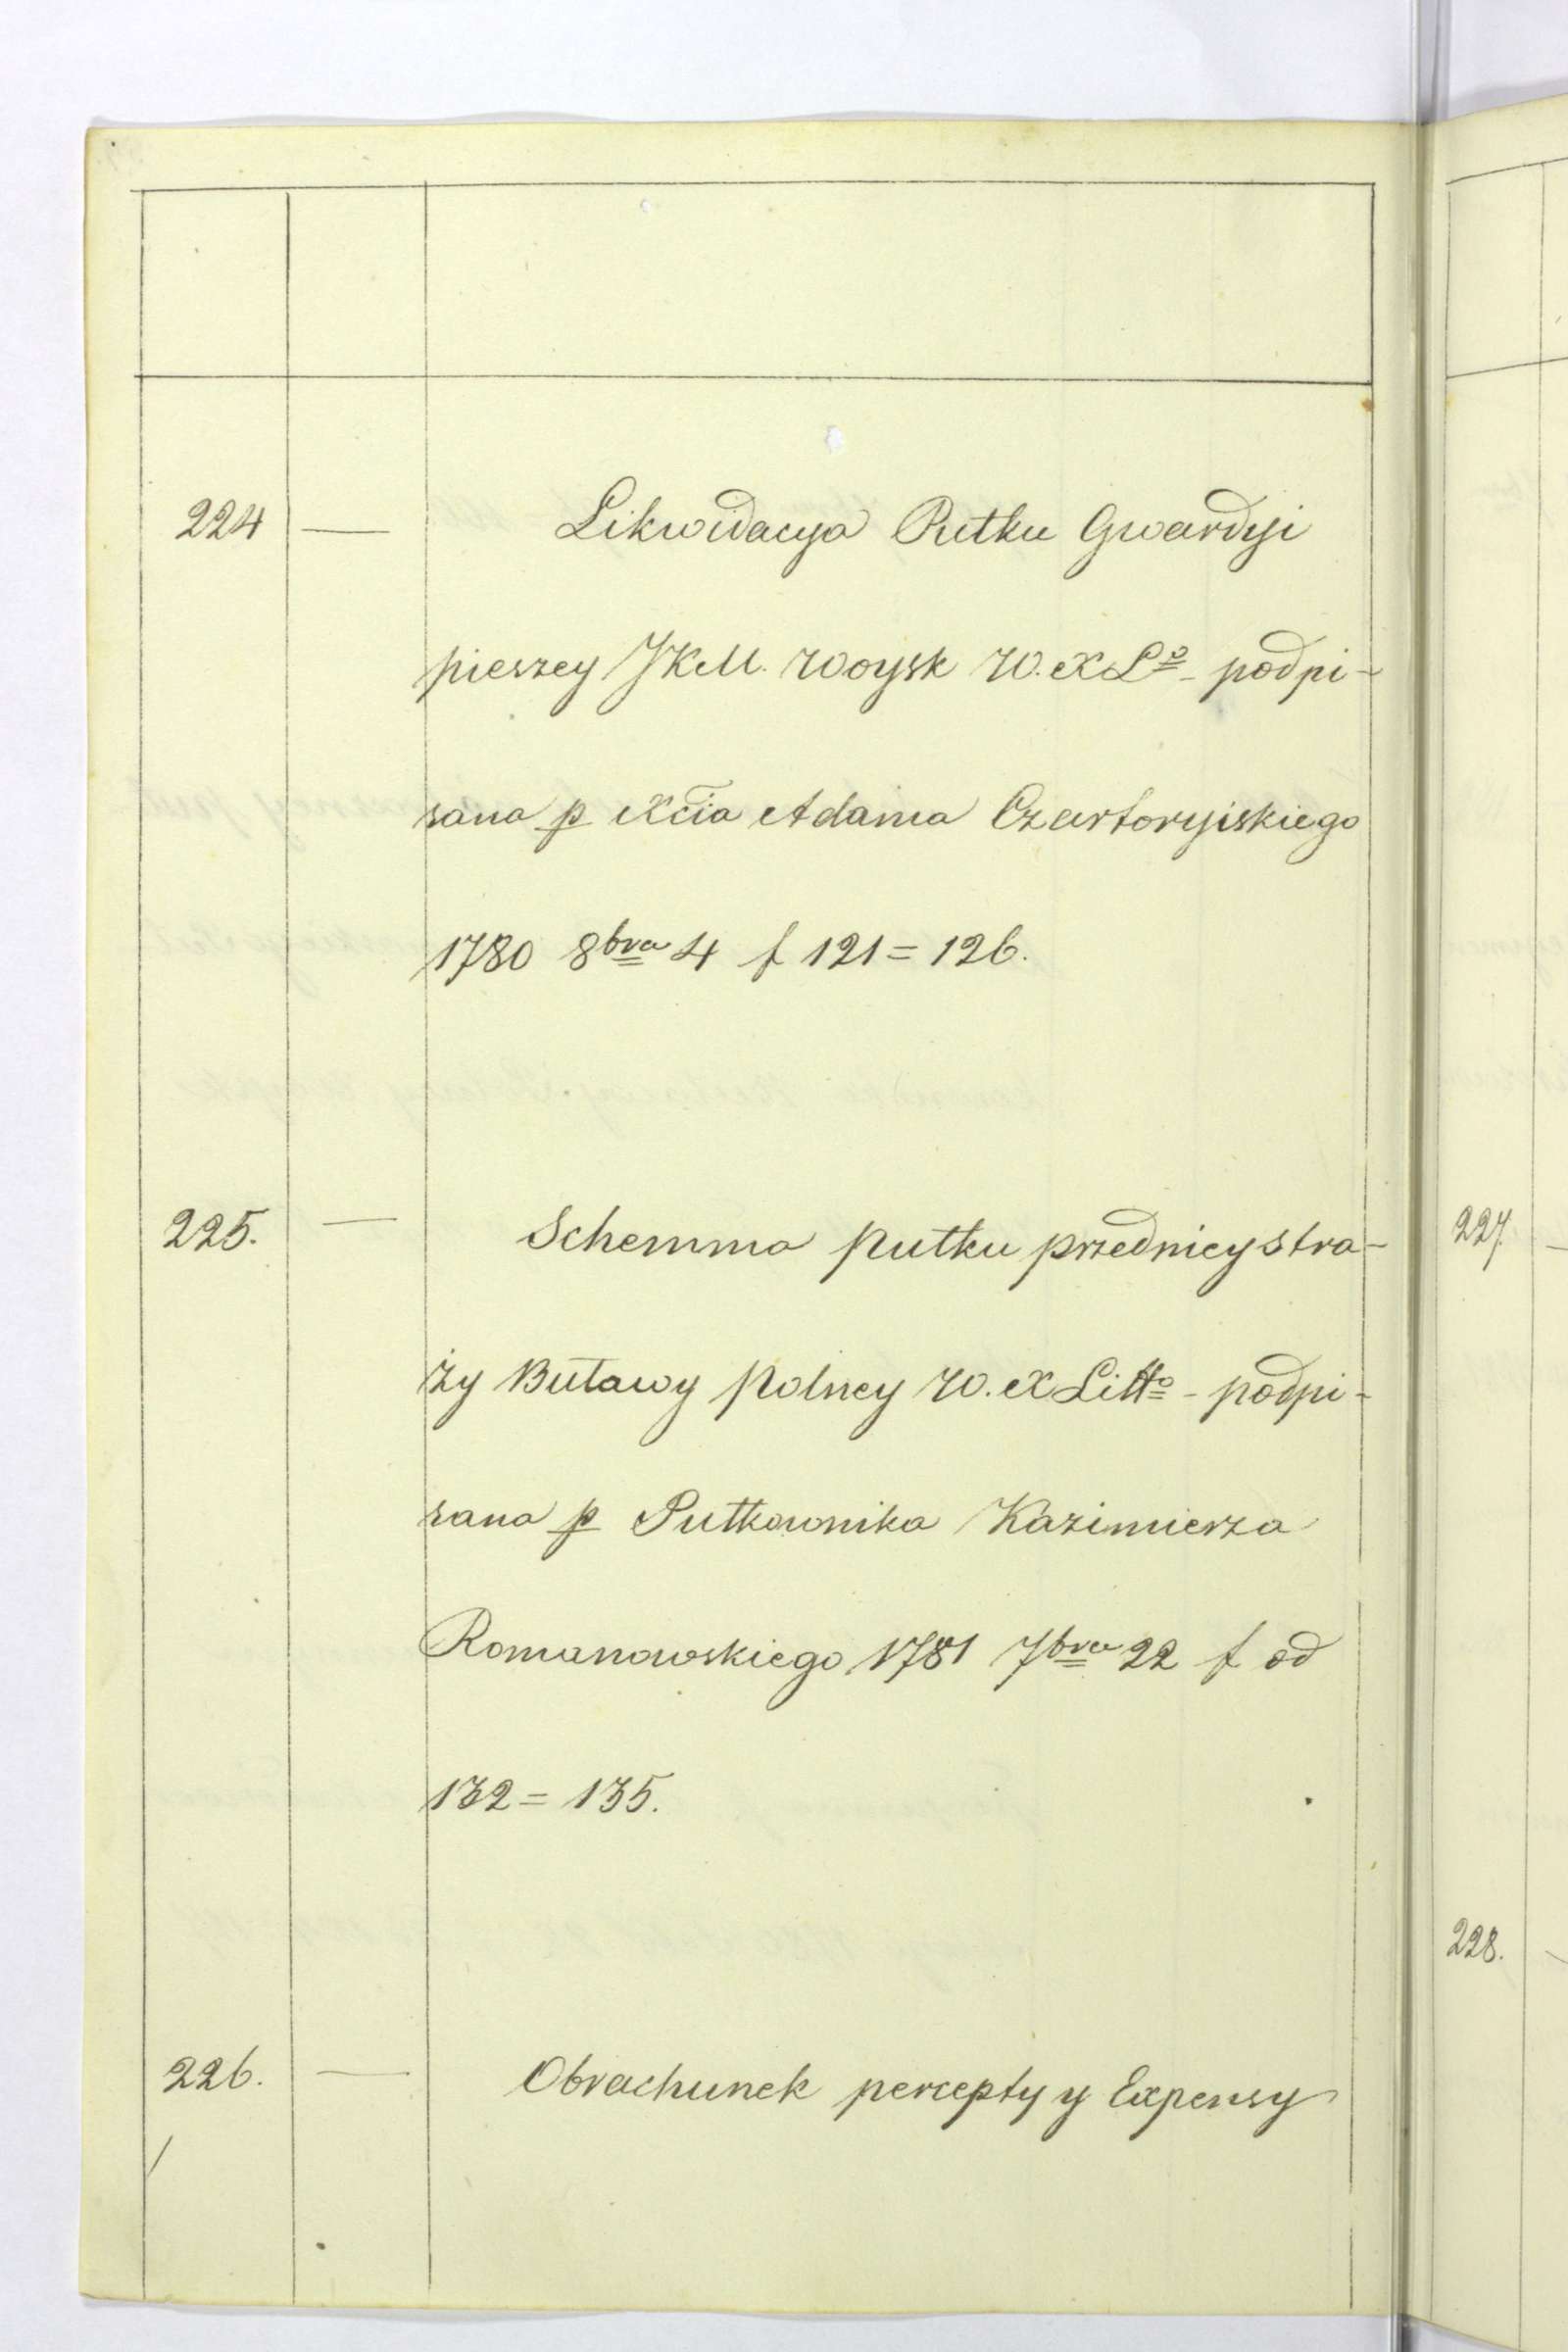 224 — Likwidacya Pułku Gwardyi
pieszey JKM. Woysk W. X Lo - podpi-
sana p Xcia Adama Czartoryiskiego
1780 8bra 4 f 121 = 126.
225. — Schemma pułku przedniey stra-
ży Buławy Polney W. X Litto - podpi-
sana p Pułkownika Kazimierza
Romanowskiego 1781 7bra 22 f od
132 = 135.
226. — Obrachunek percepty y Expensy
227.
228.